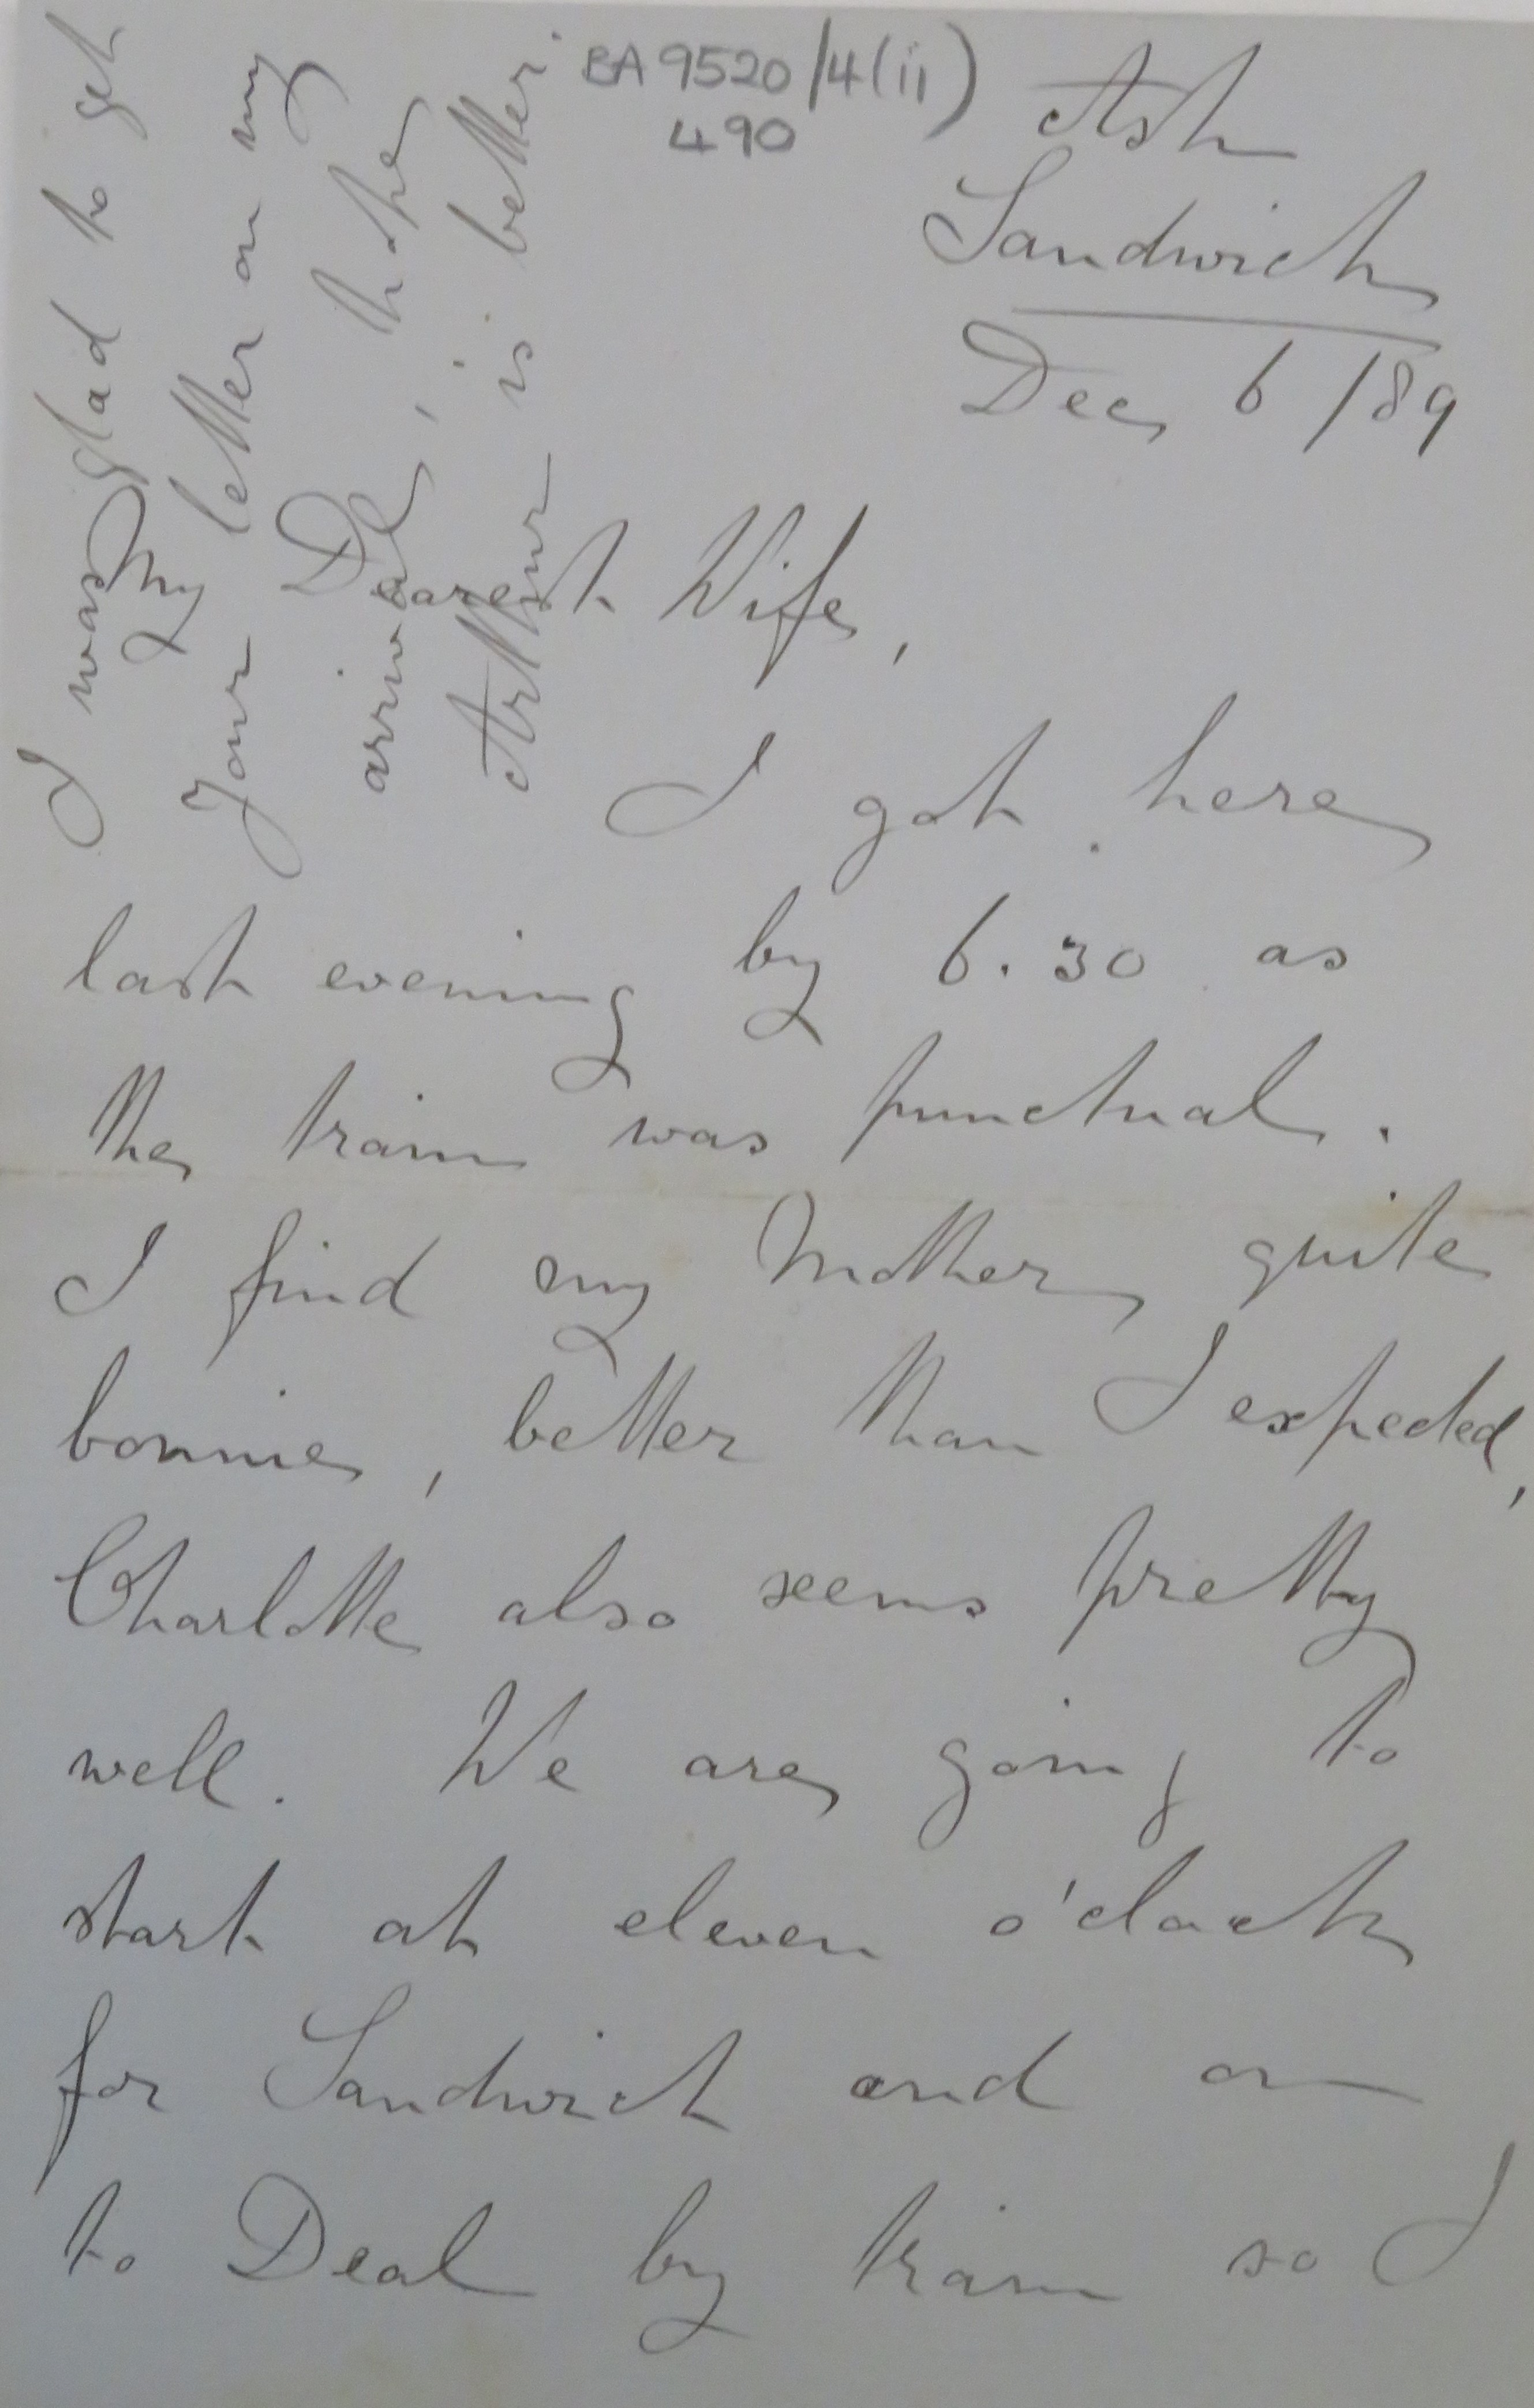 BA 9520/4(ii)
490
Ash
Sandwich
Dec 6 /89
My Dearest Wife,
I got here
last evening by 6.30 as
the train was punctual.
I find my Mother quite
bonnie, better than I expected,
Charlotte also seems pretty
well. We are going to
start at eleven o'clock
for Sandwich and on
to Deal by train so I
I was glad to get
your letter on my
arrival, I hope
Arthur is better